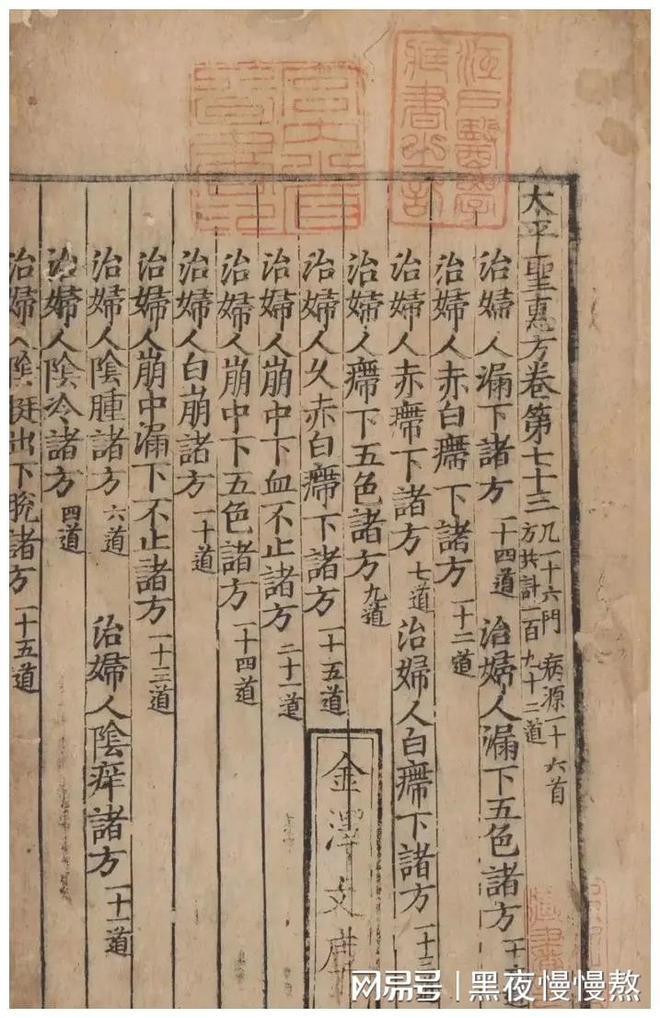 太平聖惠方卷第七十三 凡一十六門 病源一十六首
方共計一百九十二道
治婦人漏下諸方 一十四道 治婦人漏下五色諸方
治婦人赤白癠下諸方 一十二道
治婦人赤癠下諸方 七道 治婦人白癠下諸方 一十三
治婦人癠下五色諸方 九道
治婦人久赤白癠下諸方 一十五道
治婦人崩中下血不止諸方 二十一道
治婦人崩中下五色諸方 一十四道
治婦人白崩諸方 一十道
治婦人崩中漏下不止諸方 一十三道
治婦人陰腫諸方 六道 治婦人陰痒諸方 一十一道
治婦人陰冷諸方 四道
治婦人陰挺出下脫諸方 一十五道
江戶醫學
藏書之記
金澤文庫
網易号 | 黑夜慢慢熬